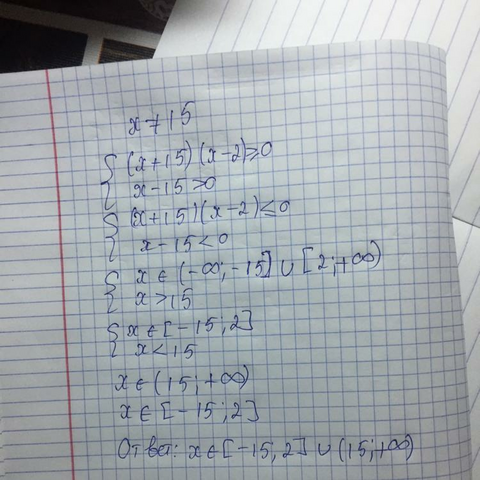 x ≠ 15
{ (x+15)(x-2) ≥ 0
{ x-15 > 0
{ (x+15)(x-2) ≤ 0
{ x-15 < 0
{ x ∈ (-∞; -15] ∪ [2; +∞)
{ x > 15
{ x ∈ [-15; 2]
{ x < 15
x ∈ (15; +∞)
x ∈ [-15; 2]
Ответ: x ∈ [-15; 2] ∪ (15; +∞)